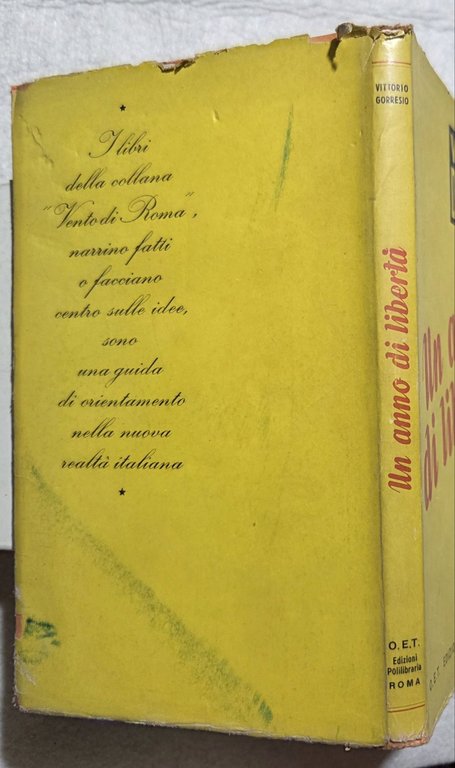 ★
I libri
della collana
"Vento di Roma",
narrino fatti
o facciano
centro sulle idee,
sono
una guida
di orientamento
nella nuova
realtà italiana
★
VITTORIO
GORRESIO
Un anno di libertà
O.E.T.
Edizioni
Polilibraria
ROMA
Un a
di li
O.E.T. EDIZ